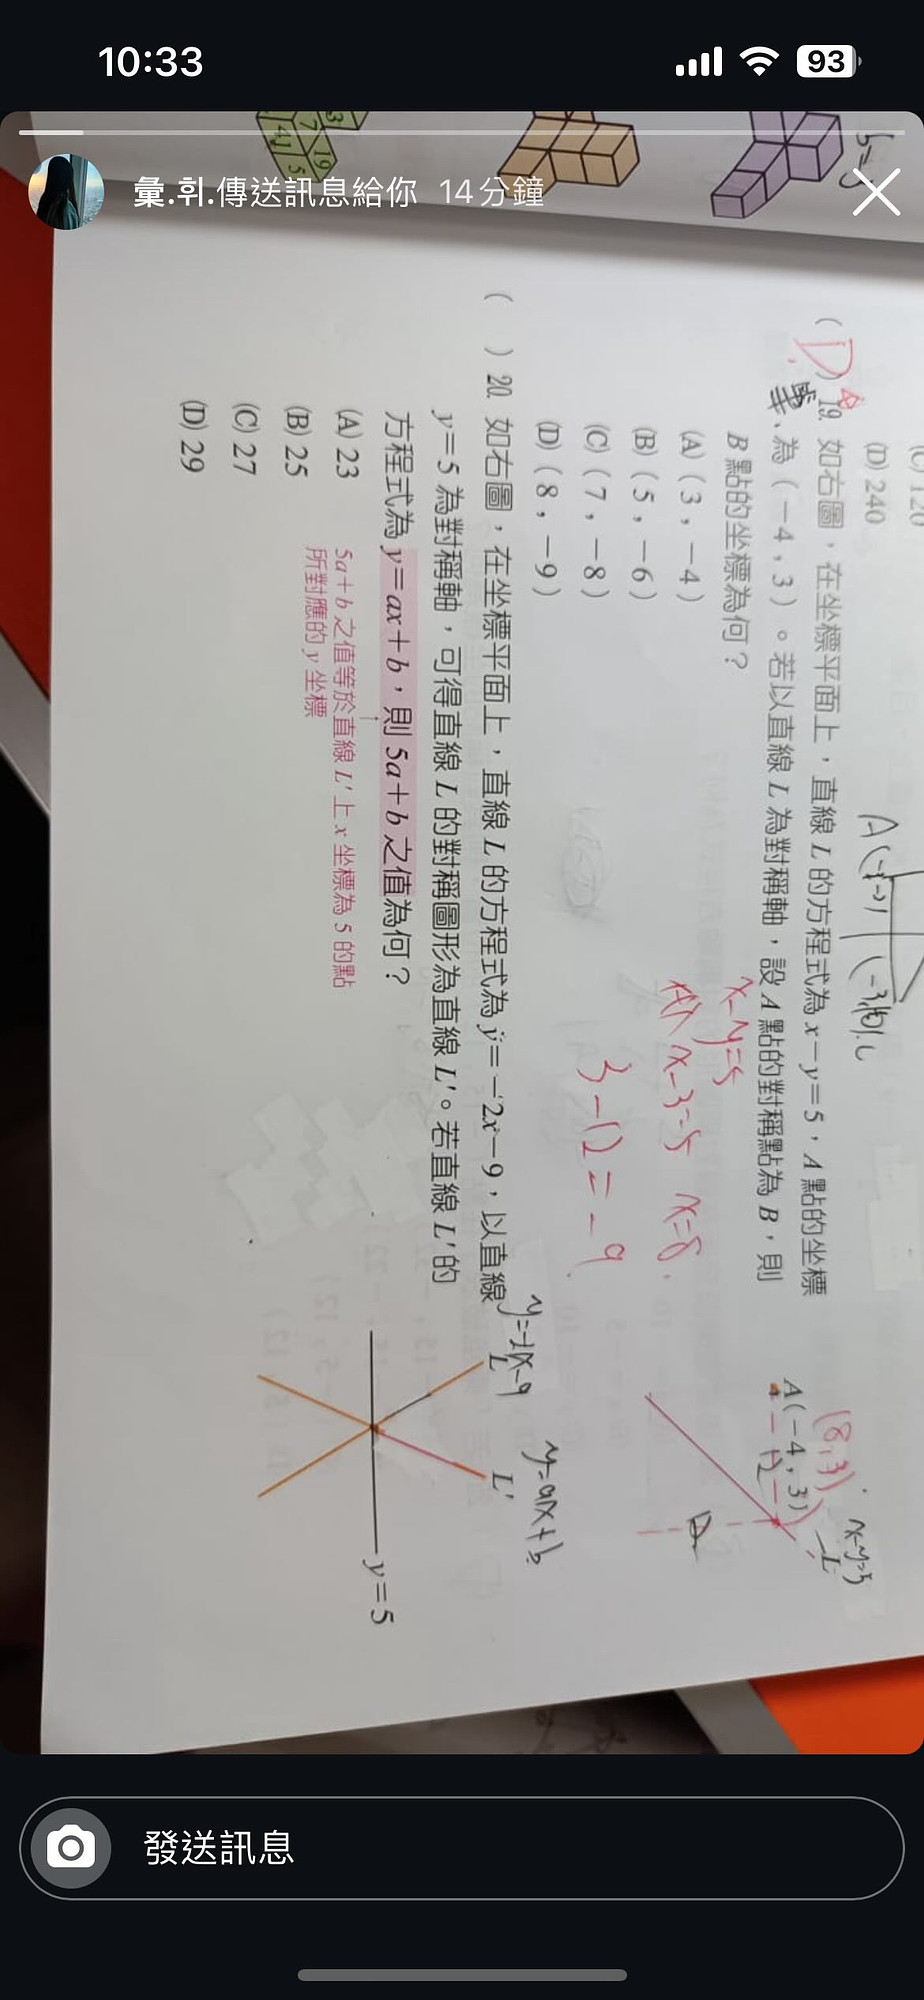 10:33
93
彙.휘.傳送訊息給你 14分鐘
(D) 240
(D) 19. 如右圖，在坐標平面上，直線 L 的方程式為 x－y＝5，A 點的坐標
為（－4，3）。若以直線 L 為對稱軸，設 A 點的對稱點為 B，則
B 點的坐標為何？
(A)（3，－4）
(B)（5，－6）
(C)（7，－8）
(D)（8，－9）
x-y=5
x-3=5 x=8
3-12=-9
(8,3)
x-y=5
A(－4，3)
L
( ) 20. 如右圖，在坐標平面上，直線 L 的方程式為 y＝－2x－9，以直線
y＝5 為對稱軸，可得直線 L 的對稱圖形為直線 L'。若直線 L' 的
方程式為 y＝ax＋b，則 5a＋b 之值為何？
(A) 23
(B) 25
(C) 27
(D) 29
5a＋b 之值等於直線 L' 上 x 坐標為 5 的點
所對應的 y 坐標
y=-2x-9
y=ax+b
L
L'
y＝5
發送訊息